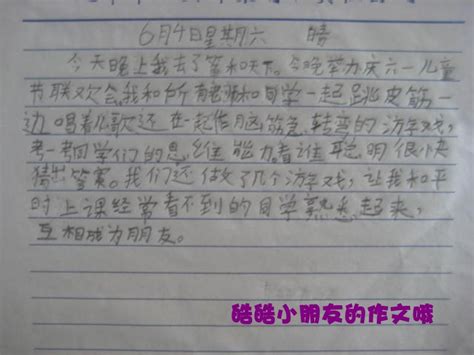 6月4日星期六 晴
今天晚上我去了望和天下。今晚举办庆六一儿童
节联欢会,我和所有老师和同学一起跳皮筋一
边唱着儿歌还在一起作脑筋急转弯的游戏,
考一考同学们的思维能力看谁聪明很快
猜出答案。我们还做了几个游戏,让我和平
时上课经常看不到的同学熟悉起来,
互相成为朋友。
皓皓小朋友的作文哦